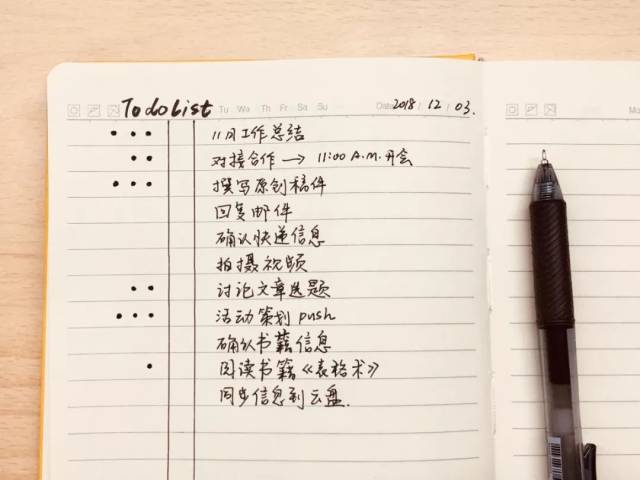 Todo List Tu We Th Fr Sa Su Date 2018 . 12 . 03.
11月工作总结
对接合作 → 11:00 A.M.开会
撰写原创稿件
回复邮件
确认快递信息
拍摄视频
讨论文章选题
活动策划 push
确认书籍信息
阅读书籍《表格术》
同步信息到云盘.